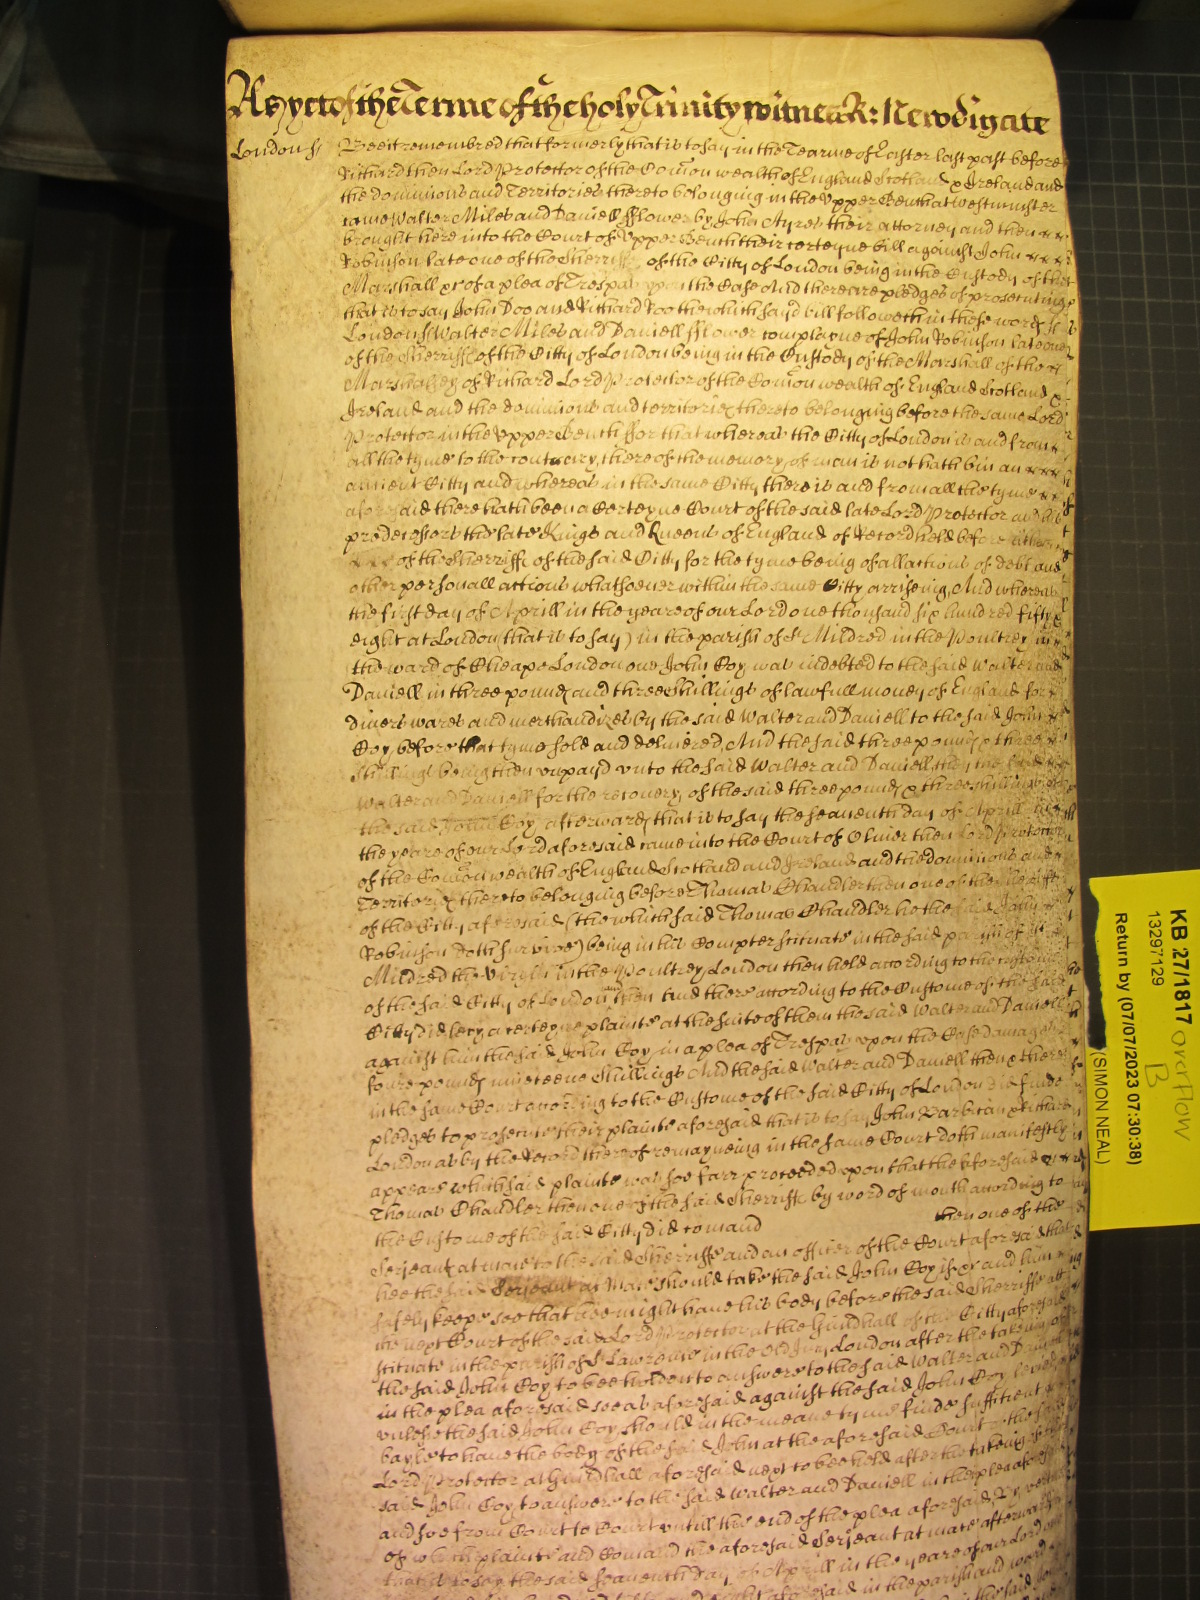 As yet of the Terme of the holy Trinity witnes R: Newdigate
London ss
Bee it remembred that formerly that is to say in the Tearme of Easter last past before
Richard then Lord Protector of the Comon wealth of England Scotland & Ireland and
the dominions and Territories thereto belonging in the Upper Bench at Westminster
came Walter Miles and Daniell fflower by John Ayres their attorney and then
brought here into the Court of Upper Bench their certeyne bill against John
Robinson late one of the Sherriffs of the Citty of London being in the Custody of the
Marshall &c of a plea of Trespas upon the Case And there are pledges of prosecuting
that is to say John Doo and Richard Roo the which sayd bill followeth in these words ss
London ss Walter Miles and Daniell fflower complayne of John Robinson late one
of the Sherriffs of the Citty of London being in the Custody of the Marshall of the
Marshalsey of Richard Lord Protector of the Comon wealth of England Scotland &
Ireland and the dominions and territories thereto belonging before the same Lord
Protector in the Upper Bench ffor that whereas the Citty of London is and from
all the tyme to the contrary thereof the memory of man is not hath bin an
ancient Citty and whereas in the same Citty there is and from all the tyme
aforesaid there hath been a Certeyne Court of the said late Lord Protector and his
predecessors the late Kings and Queens of England of Record held before either
of the Sherriffs of the said Citty for the tyme being of all actions of debt and
other personall actions whatsoever within the same Citty arriseing And whereas
the first day of Aprill in the yeare of our Lord one thousand six hundred fifty
eight at London (that is to say) in the parish of St Mildred in the Poultrey in
the ward of Cheape London one John Coy was indebted to the said Walter and
Daniell in three pounds and three Shillings of lawfull money of England for
divers wares and merchandizes by the said Walter and Daniell to the said John
Coy before that tyme sold and delivered, And the said three pounds & three
Shillings being then unpayd unto the said Walter and Daniell they the said
Walter and Daniell for the recovery of the said three pounds & three shillings of
the said John Coy afterwards that is to say the seaventh day of Aprill in
the yeare of our Lord aforesaid came into the Court of Oliver then Lord Protector
of the Comon wealth of England Scotland and Ireland and the dominions and
Territories thereto belonging before Thomas Chandler then one of the Sherriffs
of the Citty aforesaid (the which said Thomas Chandler he the said John
Robinson doth survive) being in his Compter scituate in the said parish of St
Mildred the Virgin in the Poultrey London then held according to the custome
of the said Citty of London then and there according to the Custome of the said
Citty did levy a certeyne plainte at the suite of them the said Walter and Daniell
against him the said John Coy in a plea of Trespas upon the Case Damages
foure pounds nineteene Shillings And the said Walter and Daniell then & there
in the same Court according to the Custome of the said Citty of London did finde
pledges to prosecute their plainte aforesaid that is to say John Barbican & Richard
London as by the Record thereof remayneing in the same Court doth manifestly
appeare which said plainte was soe farr proceeded upon that the aforesaid
Thomas Chandler then one of the said Sherriffs by word of mouth according to
the Custome of the said Citty did comand then one of the
Serjeants at mace to the said Sherriffe and an officer of the Court aforesaid that
hee the said Serjeant at Mace should take the said John Coy if &c and him
safely keepe soe that hee might have his body before the said Sherriffe att
the next Court of the said Lord Protector at the Guildhall of the Citty aforesaid
scituate in the parish of St Lawrence in the Old Jury London after the takeing of
the said John Coy to bee holden to answere to the said Walter and Daniell
in the plea aforesaid soe as aforesaid against the said John Coy levied
unlesse the said John Coy should in the meane tyme finde sufficient
bayle to have the body of the said John at the aforesaid Court of the said
Lord Protector at Guildhall aforesaid next to bee held after the takeing of the
said John Coy to answere to the said Walter and Daniell in the plea aforesaid
and soe from Court to Court untill the end of the plea aforesaid, By vertue
of which plainte and Comand the aforesaid Serjeant at mace afterwards
that is to say the said seaventh day of Aprill in the yeare of our Lord
aforesaid in the parish and ward
KB 27/1817 overflow
B
13297129
Return by (07/07/2023 07:30:38)
(SIMON NEAL)